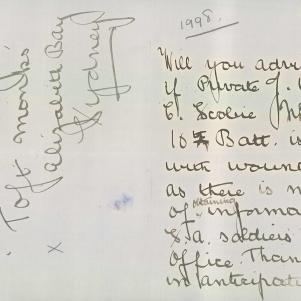 Toft monks
Elizabeth Bay
Sydney
1998.
Will you advi
if Private J.
C. Scobie
10 Batt. is
with woun
as there is n
of obtaining informa
S.A. soldiers
Office. Than
in anticipat